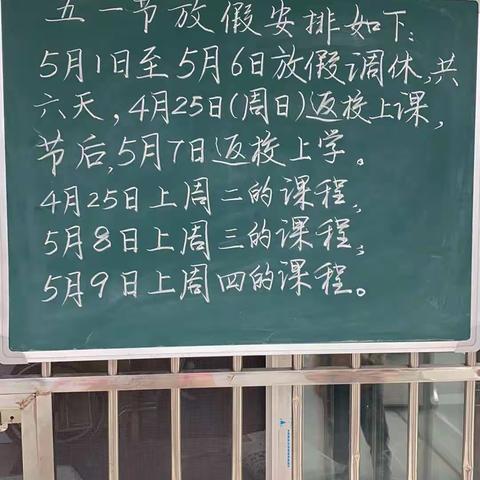 五一节放假安排如下:
5月1日至5月6日放假调休,共
六天,4月25日(周日)返校上课,
节后,5月7日返校上学。
4月25日上周二的课程,
5月8日上周三的课程,
5月9日上周四的课程。